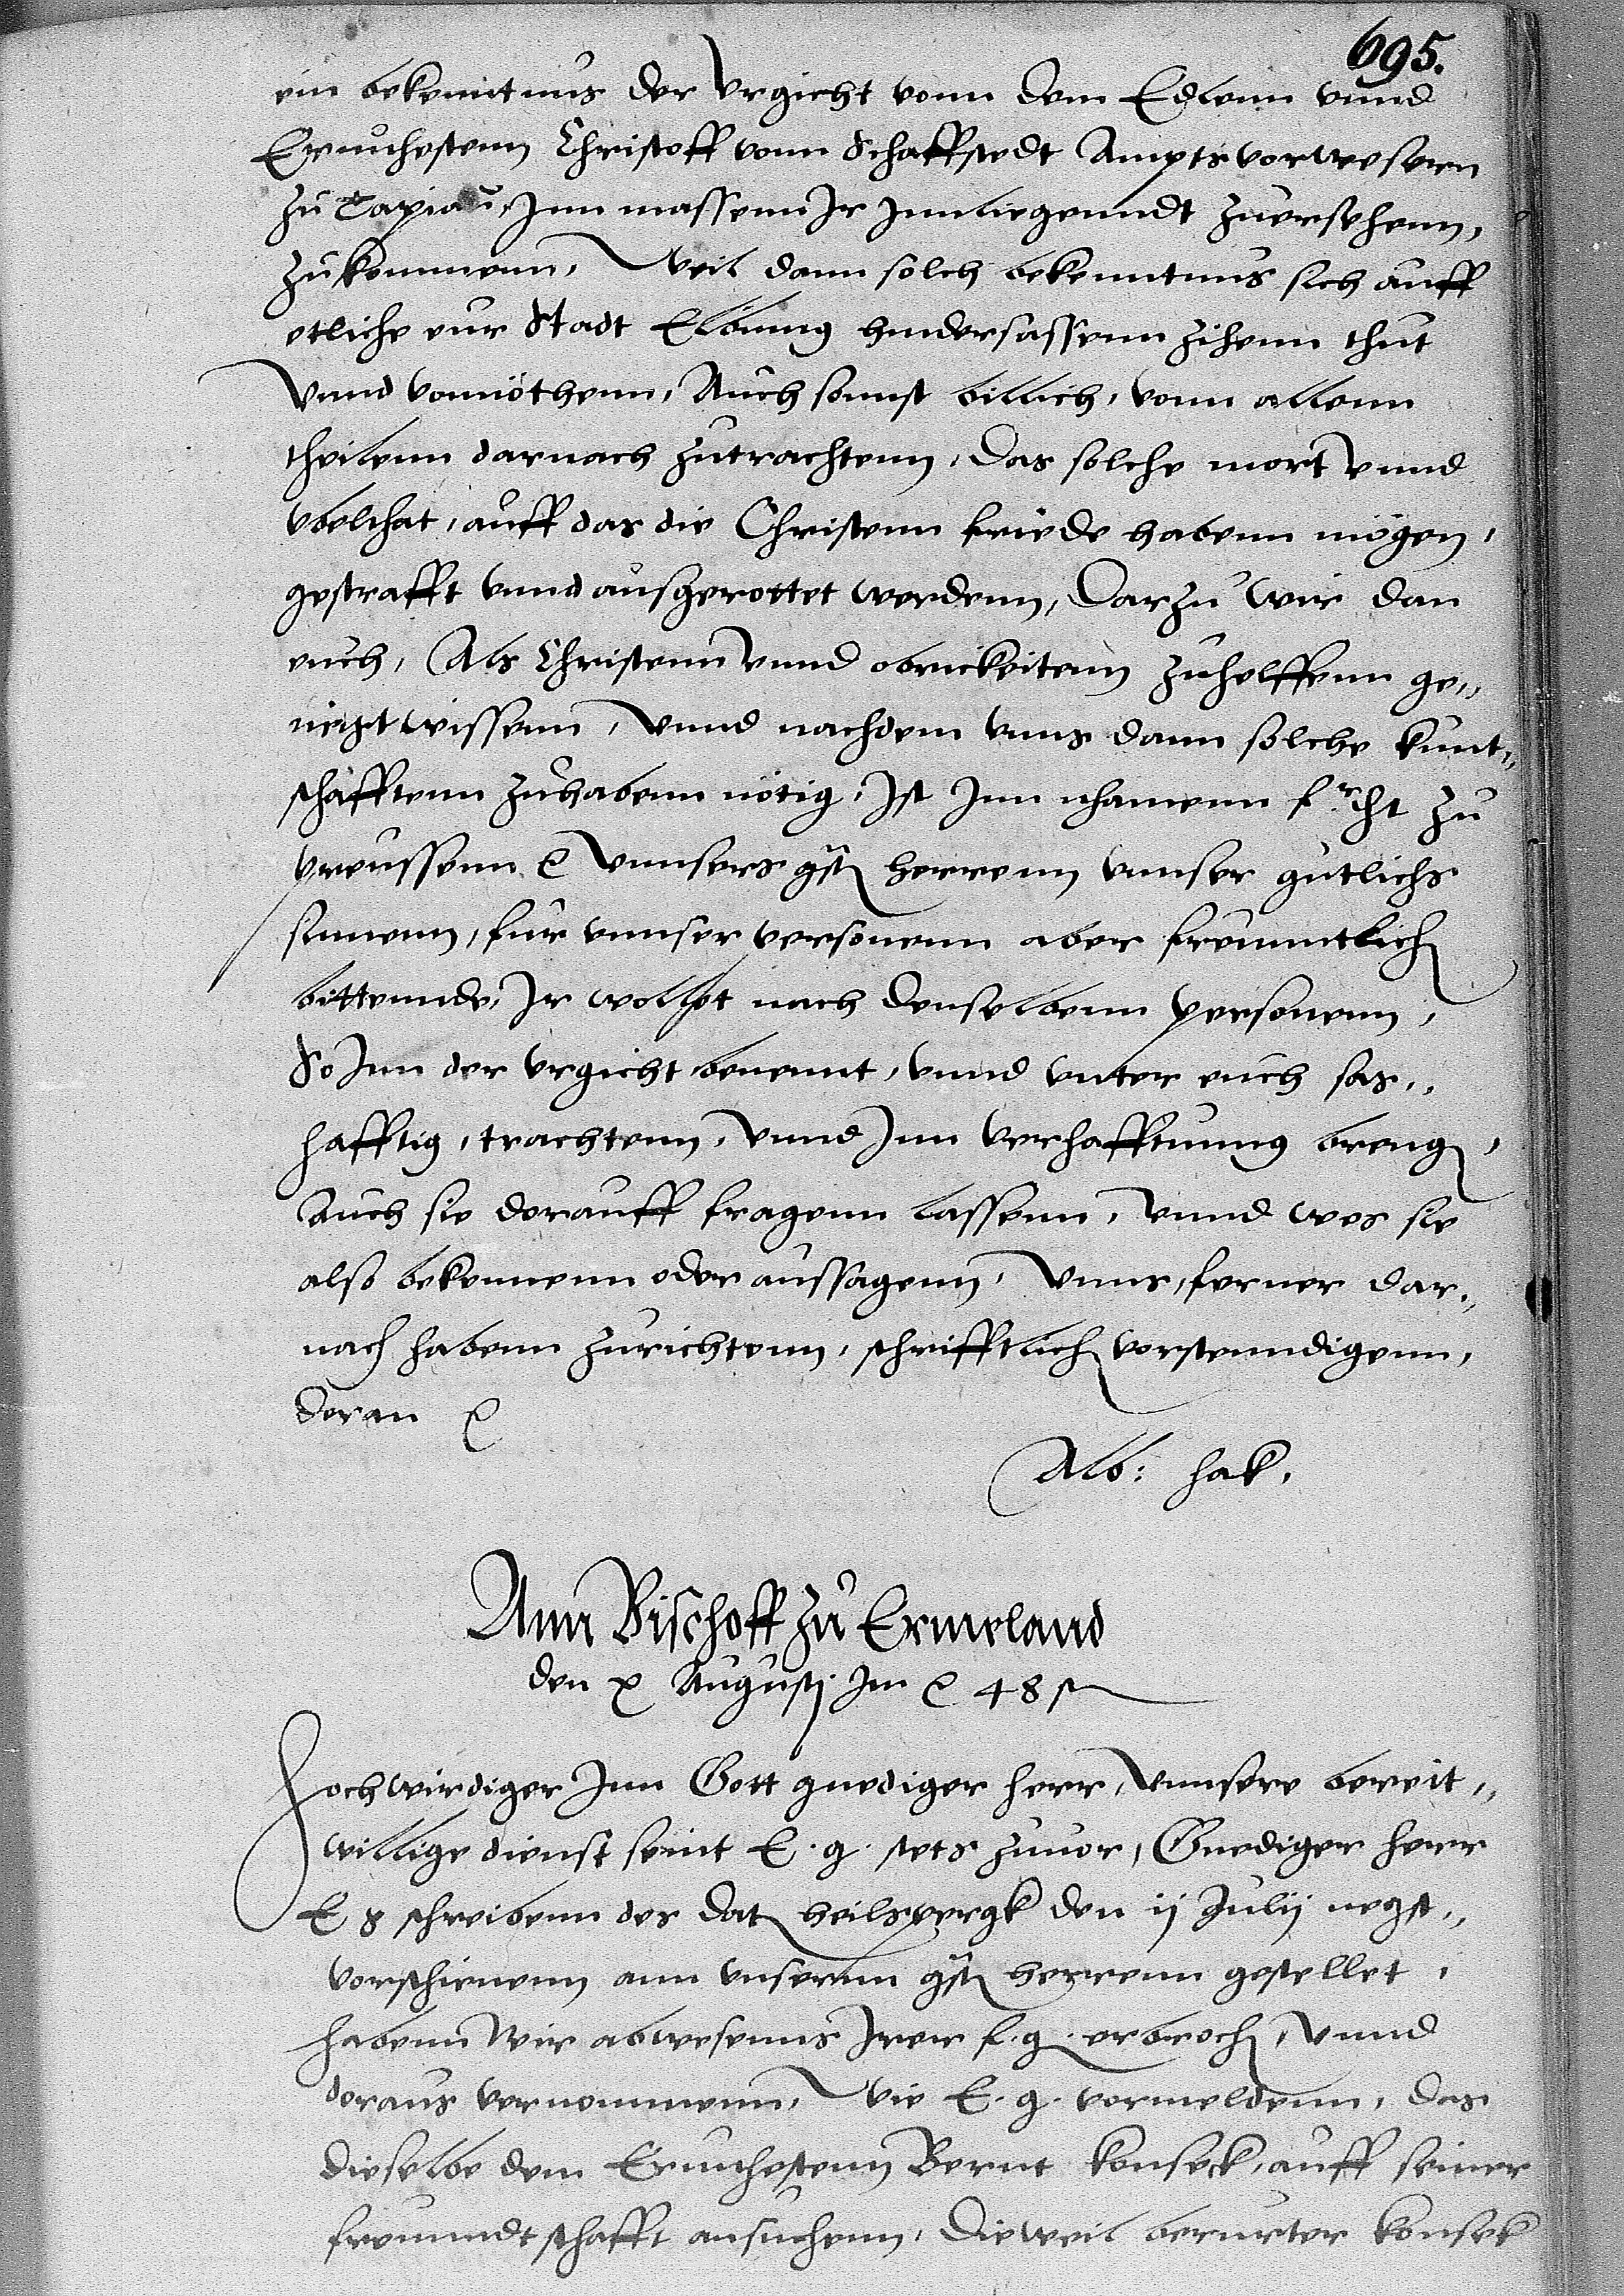 695.
ein bekenntnus der Vrgicht vonn dem Edlenn vnnd
Ernuhestenn Christoff vonn Schaffstedt Ampts vorwesern
zu Tapiau, Inn massenn Ir Innliegenndt zuersehenn,
zukommenn, Weil dann solch bekenntnus sich auff
etliche eur Stadt Elbinng hindersassenn zihenn thut
Vnnd vonnöthenn, Auch sonnst billich, vonn allenn
theilenn darnach zutrachtenn, Das solche mort vnnd
vbelthat, auff das die Christenn friede habenn mögen,
gestrafft vnnd ausgerottet werdenn, Darzu wir dan
euch, Als Christenn vnnd obrickeitenn zuhelffenn ge„
neigt wissenn, Vnnd nachdem vnns dann solche kunt„
schafftenn zuhabenn nötig, Ist Inn nhamenn f dht zu
Preussenn ꝛc Vnnsers gst herrenn vnnser gutlichs
sinnenn, fur vnnser personenn aber freunntlich
bittennde, Ir wollet nach denselbenn personenn,
So Inn der Vrgicht benennt, vnnd vnter euch sas„
hafftig, trachtenn, Vnnd Inn Verhafftunng breng,
Auch sie darauff fragenn lassenn, Vnnd wes sie
also bekennenn oder aussagenn, Vnns, ferner dar„
nach habenn zurichtenn, schrifftlich vorstenndigenn,
doran ꝛc
Alb: hak.
Ann Bischoff zu Ermeland
den x Augustj Im ꝛc 48 st
Hochwirdiger Inn Gott gnediger herr, Vnnsere bereit„
willige dienst seint E. g. stets zuuor, Gnediger herr
E g schreibenn des dat heilspergk den ij Julij negst„
vorschienenn ann vnsernn gst herrenn gestellet,
habenn Wir abwesenns Irer f. g. erbroch, Vnnd
doraus vernommenn, Wie E. g. vormeldenn, das
dieselbe dem Ernuhestenn Bernt Konseck, auff seiner
freunndtschafft ansuchenn, Dieweil berurter Konsek